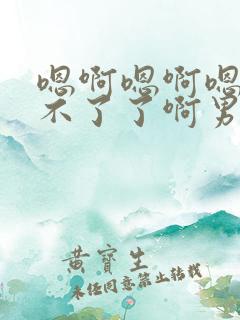 嗯啊嗯啊嗯
不了了啊男
黄宝生
未经同意禁止转载